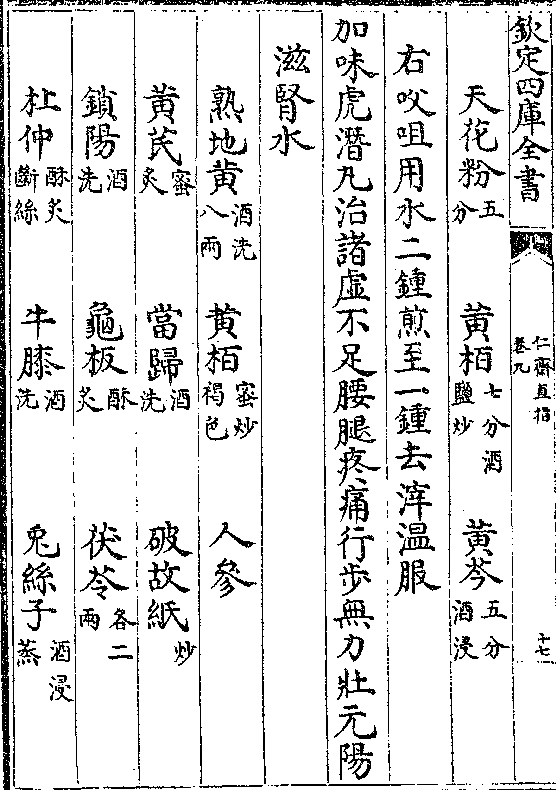 欽定四庫全書
仁齋直指
卷九
十七
天花粉五分 黄栢七分酒鹽炒 黄芩五分酒浸
右㕮咀用水二鍾煎至一鍾去滓温服
加味虎潛丸治諸虚不足腰腿疼痛行步無力壯元陽
滋腎水
熟地黄酒洗八兩 黄栢蜜炒褐色 人參
黄芪蜜炙 當歸酒洗 破故紙炒
鎖陽酒洗 龜板酥炙 茯苓各二兩
杜仲酥炙斷絲 牛膝酒洗 兎絲子酒浸蒸